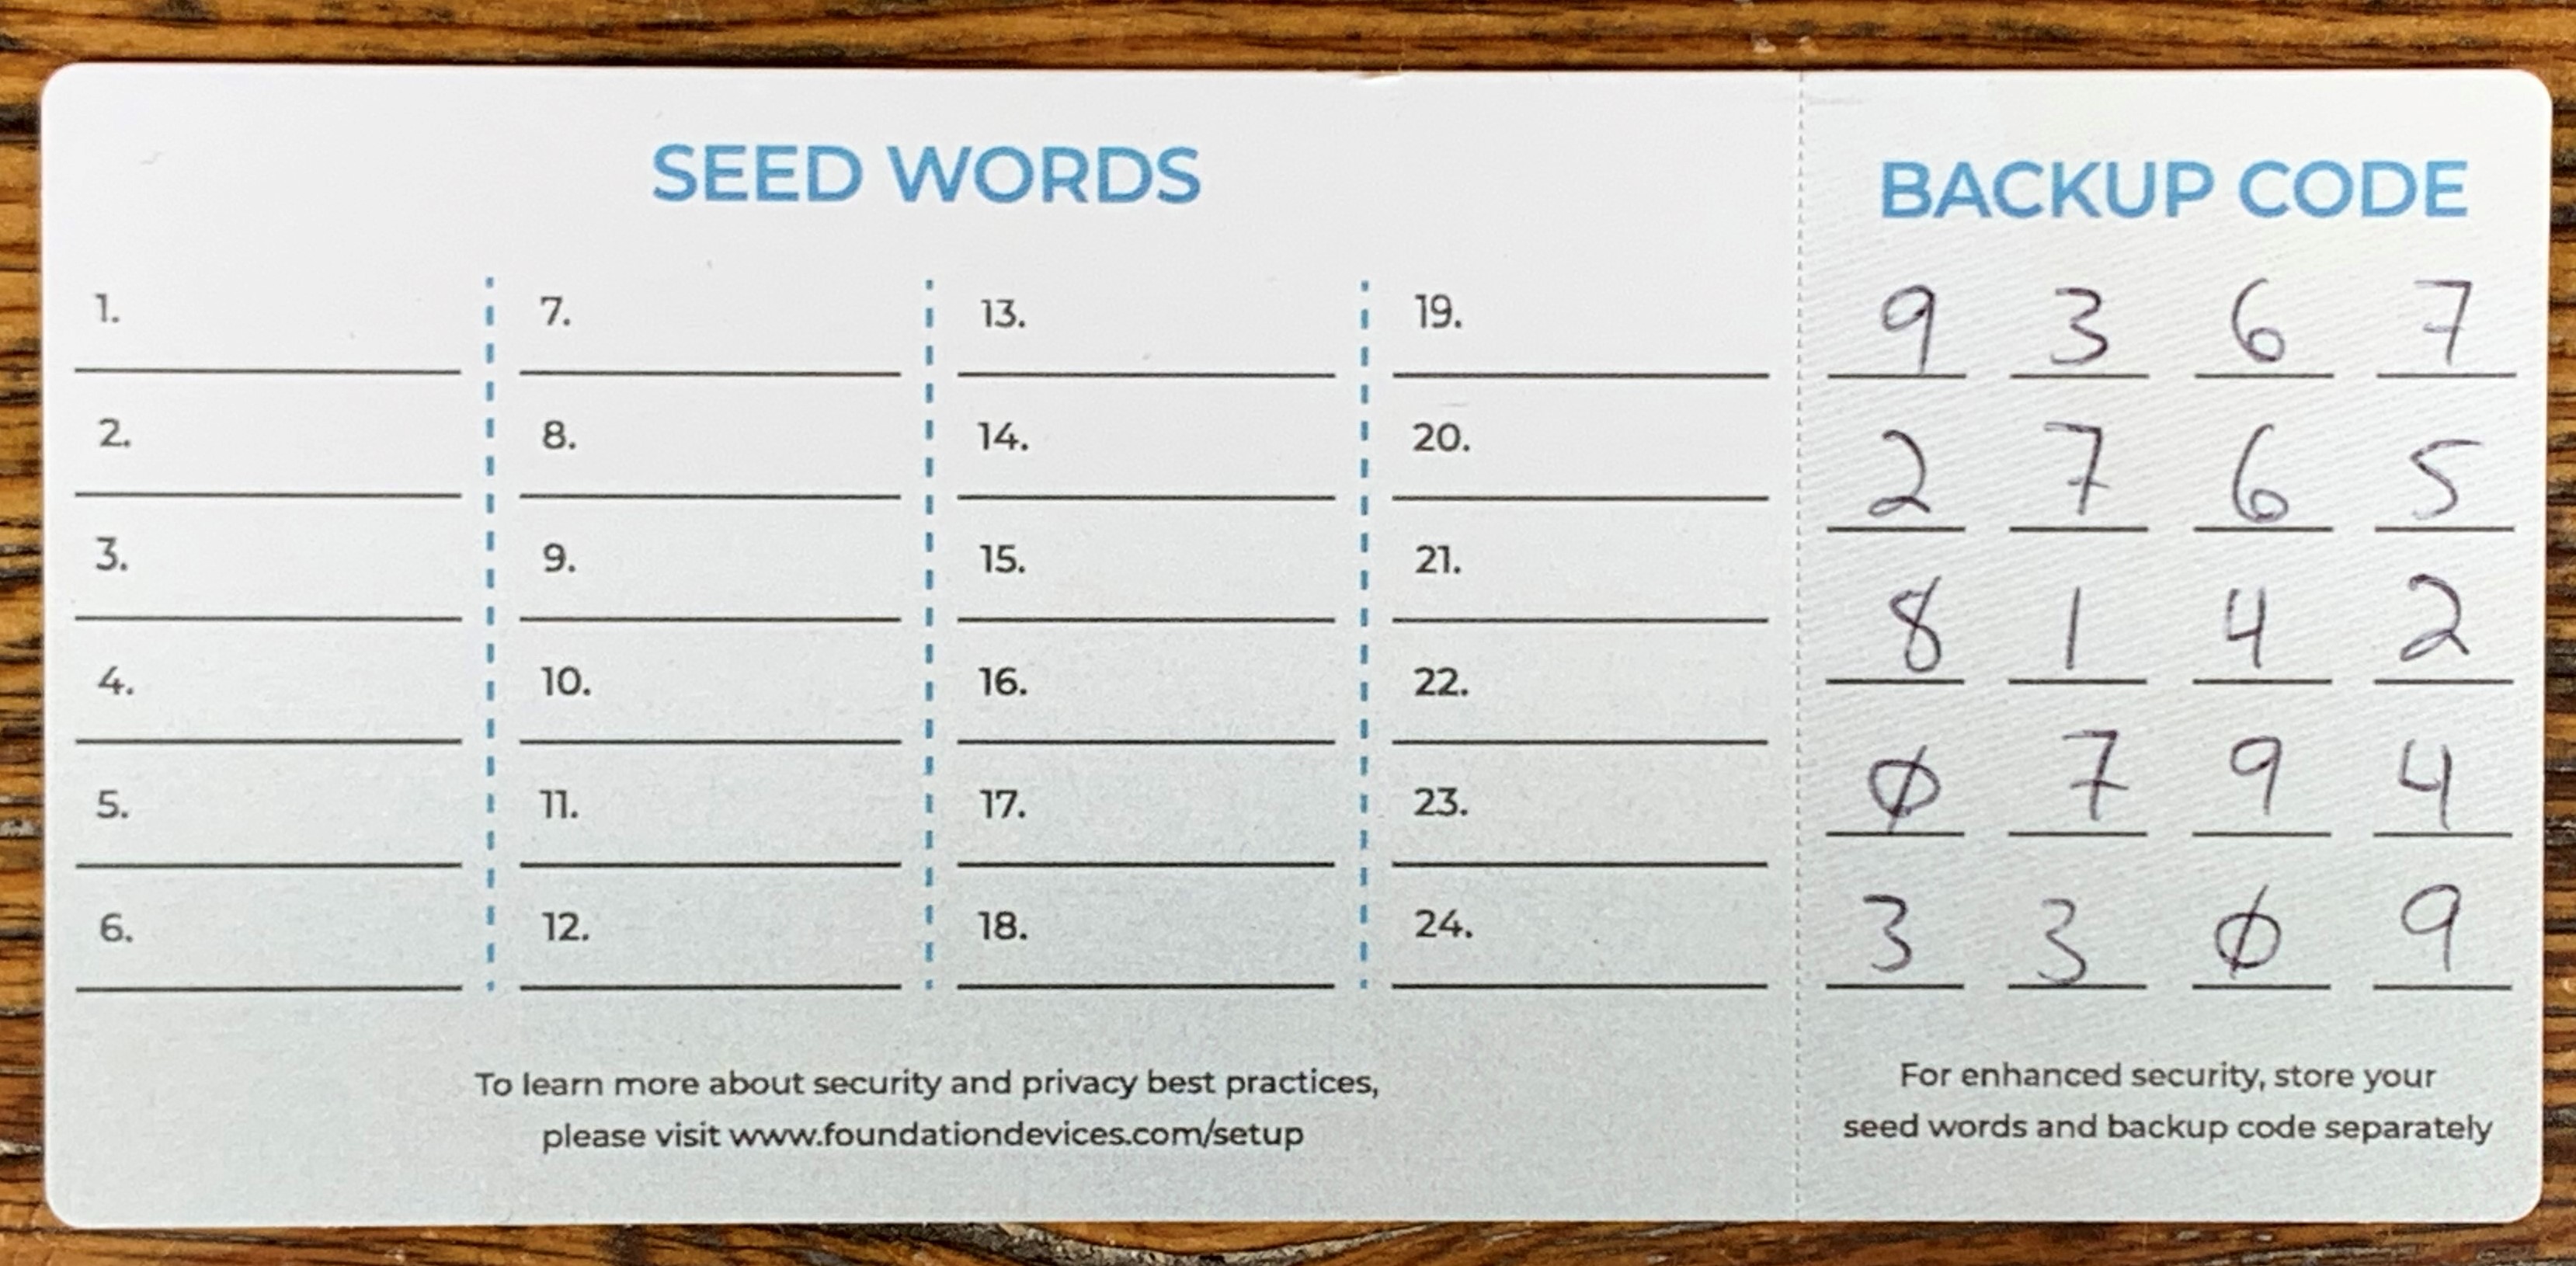 SEED WORDS
1.
2.
3.
4.
5.
6.
7.
8.
9.
10.
11.
12.
13.
14.
15.
16.
17.
18.
19.
20.
21.
22.
23.
24.
To learn more about security and privacy best practices,
please visit www.foundationdevices.com/setup
BACKUP CODE
9 3 6 7
2 7 6 5
8 1 4 2
0 7 9 4
3 3 0 9
For enhanced security, store your
seed words and backup code separately